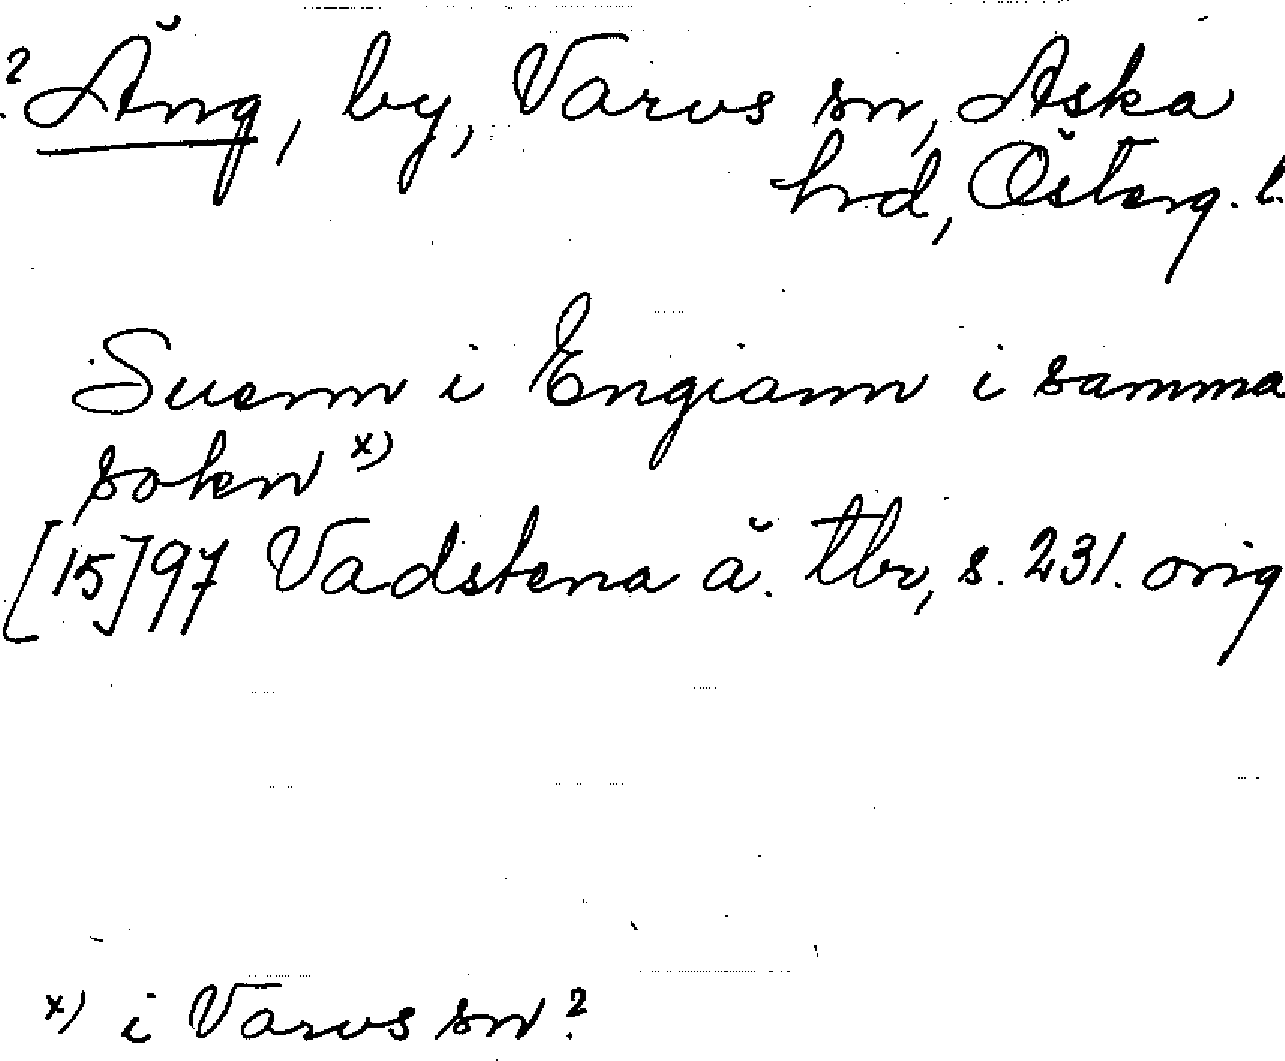 ? Äng, by, Varvs sn, Aska
hrd, Österg. l.
Suenn i Engiann i samma
sokn x)
[15]97 Vadstena ä. tbr, s. 231. orig
x) i Varvs sn?